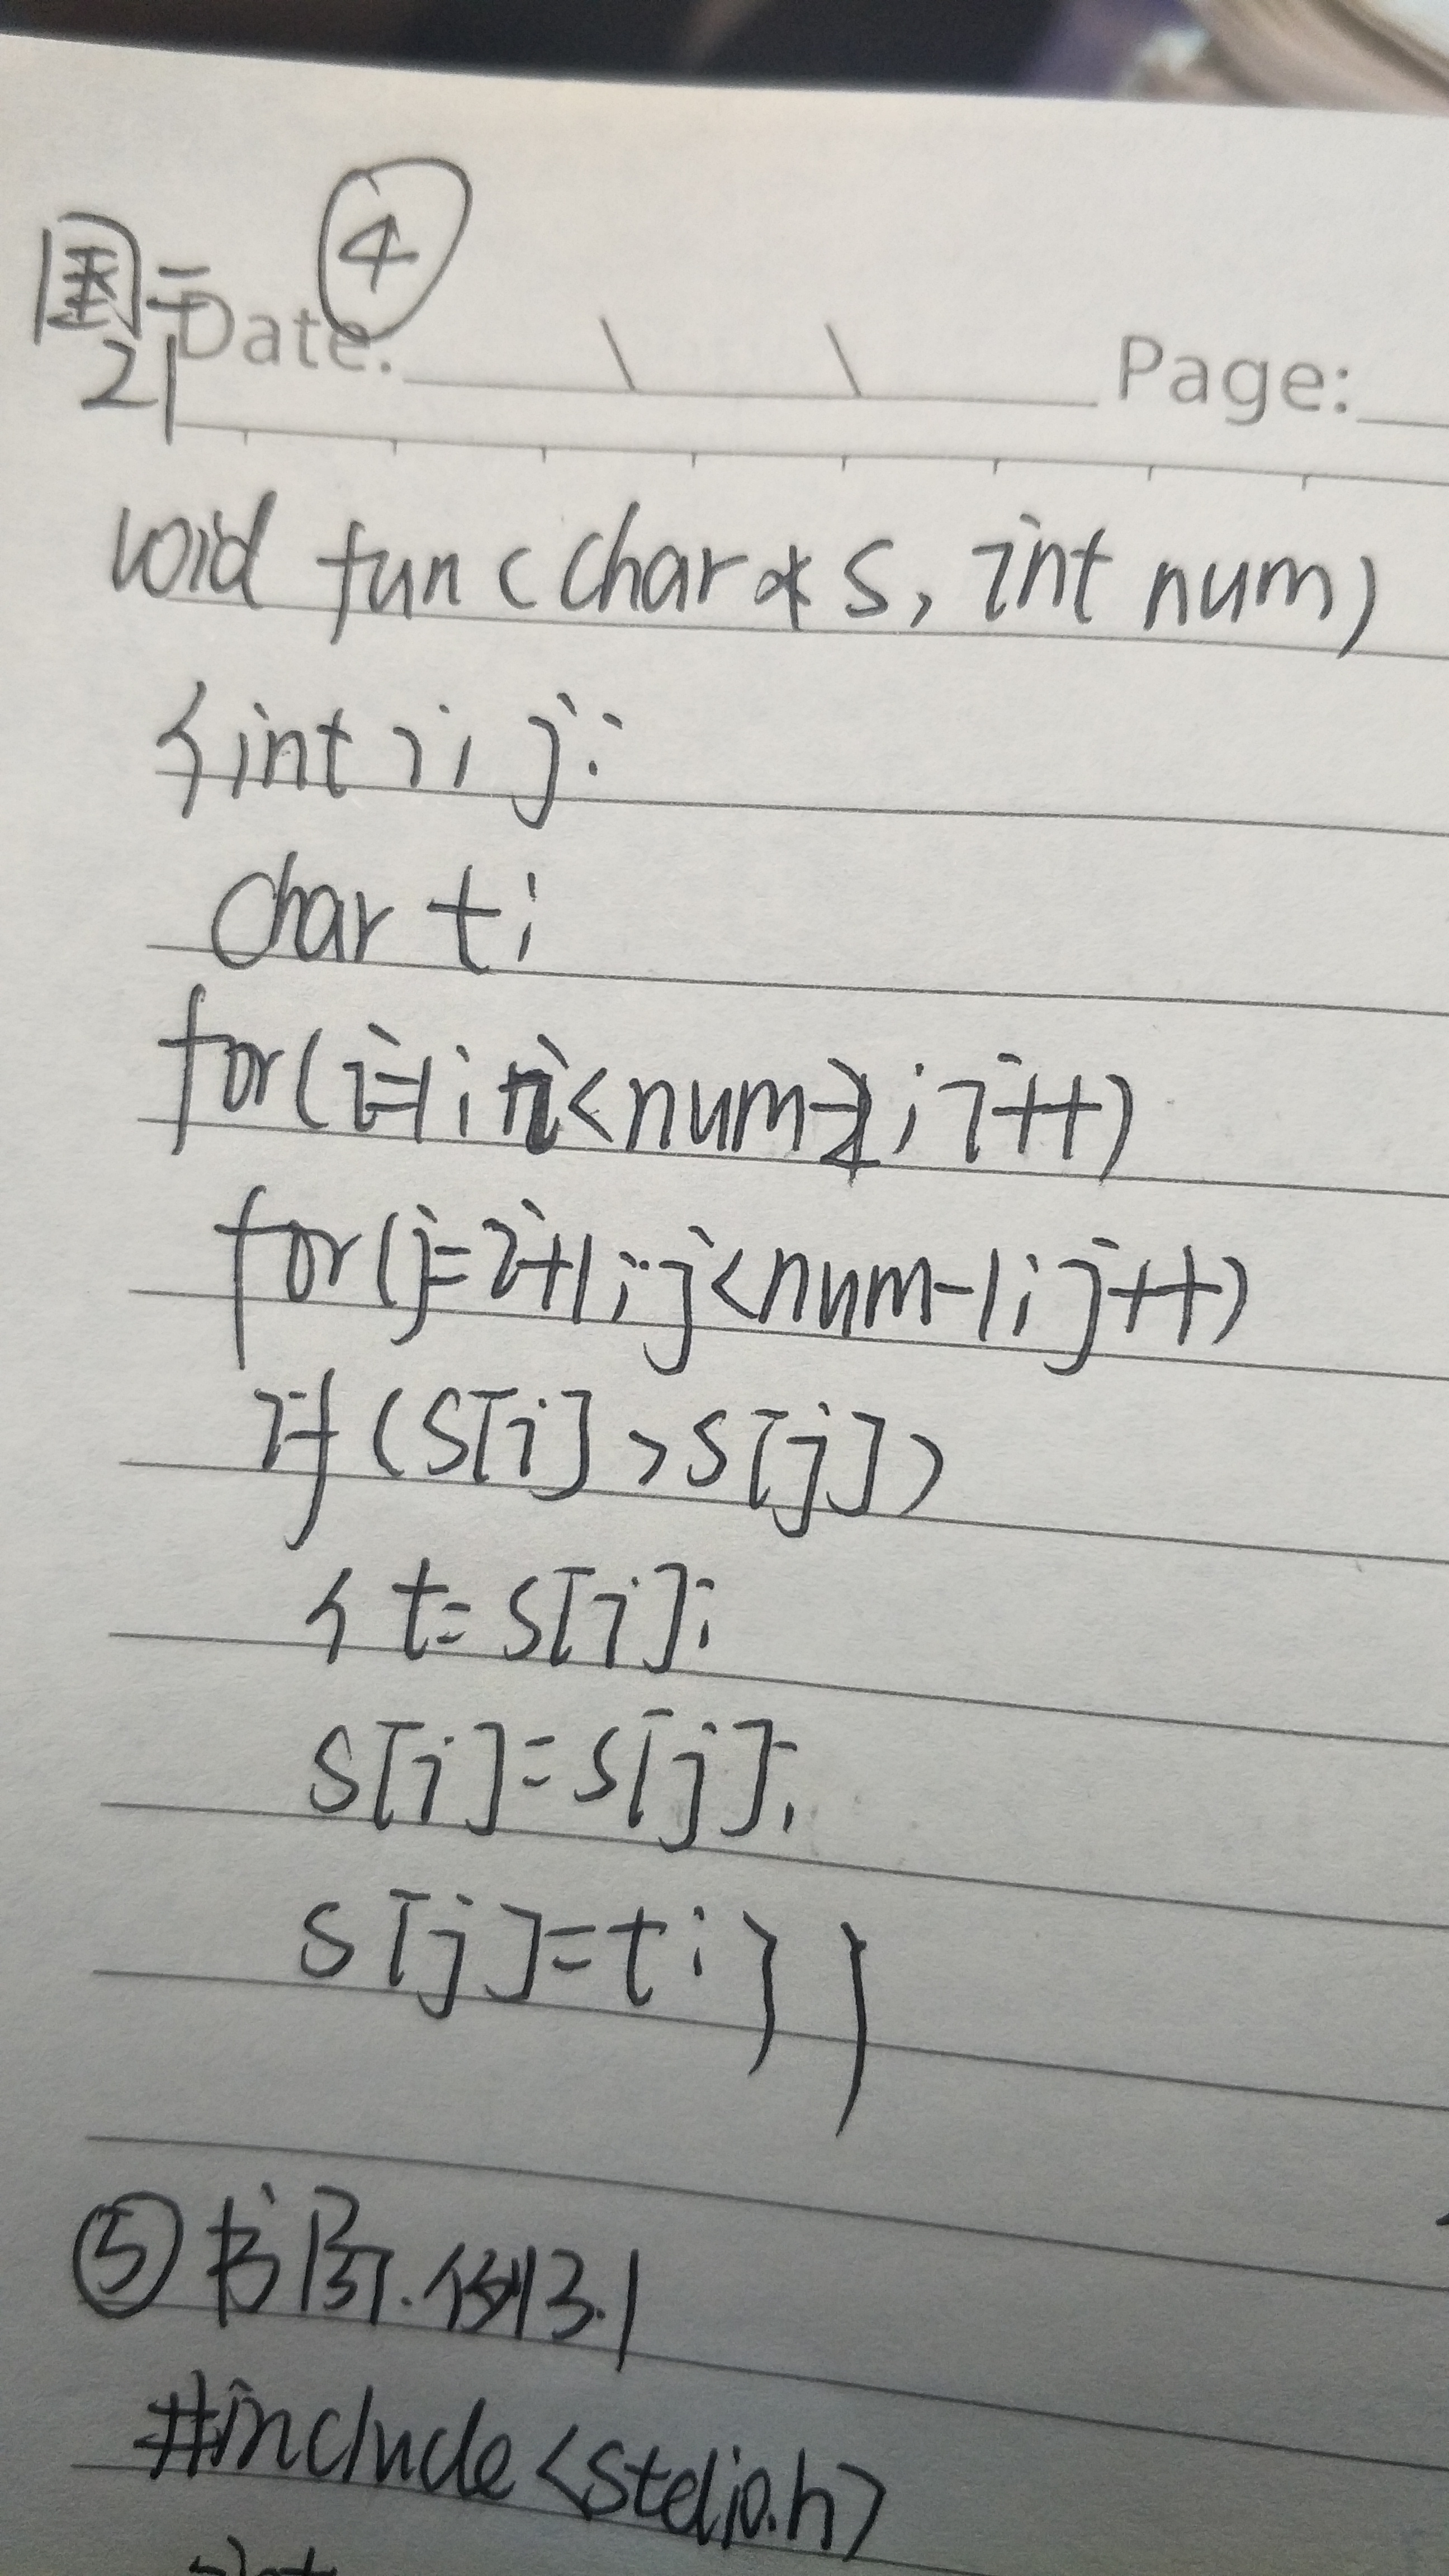 国二 ④
21 Date: \ \ Page:
void fun(char *s, int num)
{int i, j;
char t;
for(i=1; i<num-2; i++)
for(j=i+1; j<num-1; j++)
if(s[i]>s[j])
{t=s[i];
s[i]=s[j];
s[j]=t;}}
⑤书 例3.1
#include<stdio.h>